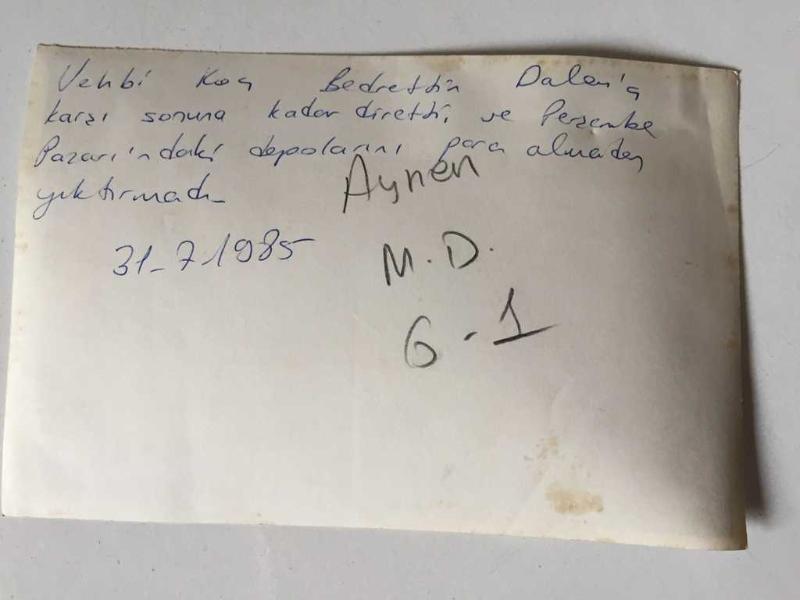 Vehbi Koç Bedrettin Dalan'a
karşı sonuna kadar direttti, ve Perşembe
Pazarı'ndaki depolarını para almadan
yıktırmadı
Aynen
31-7-1985
M.D.
6-1